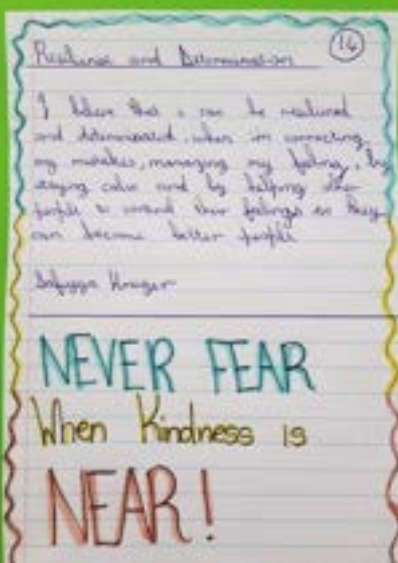 Resilience and Determination
14
I believe that i can be resilient
and determinated, when im correcting
my mistakes, managing my feeling, by
staying calm and by helping other
people to their feelings so they
can become better people
Kruger
NEVER FEAR
When Kindness is
NEAR!